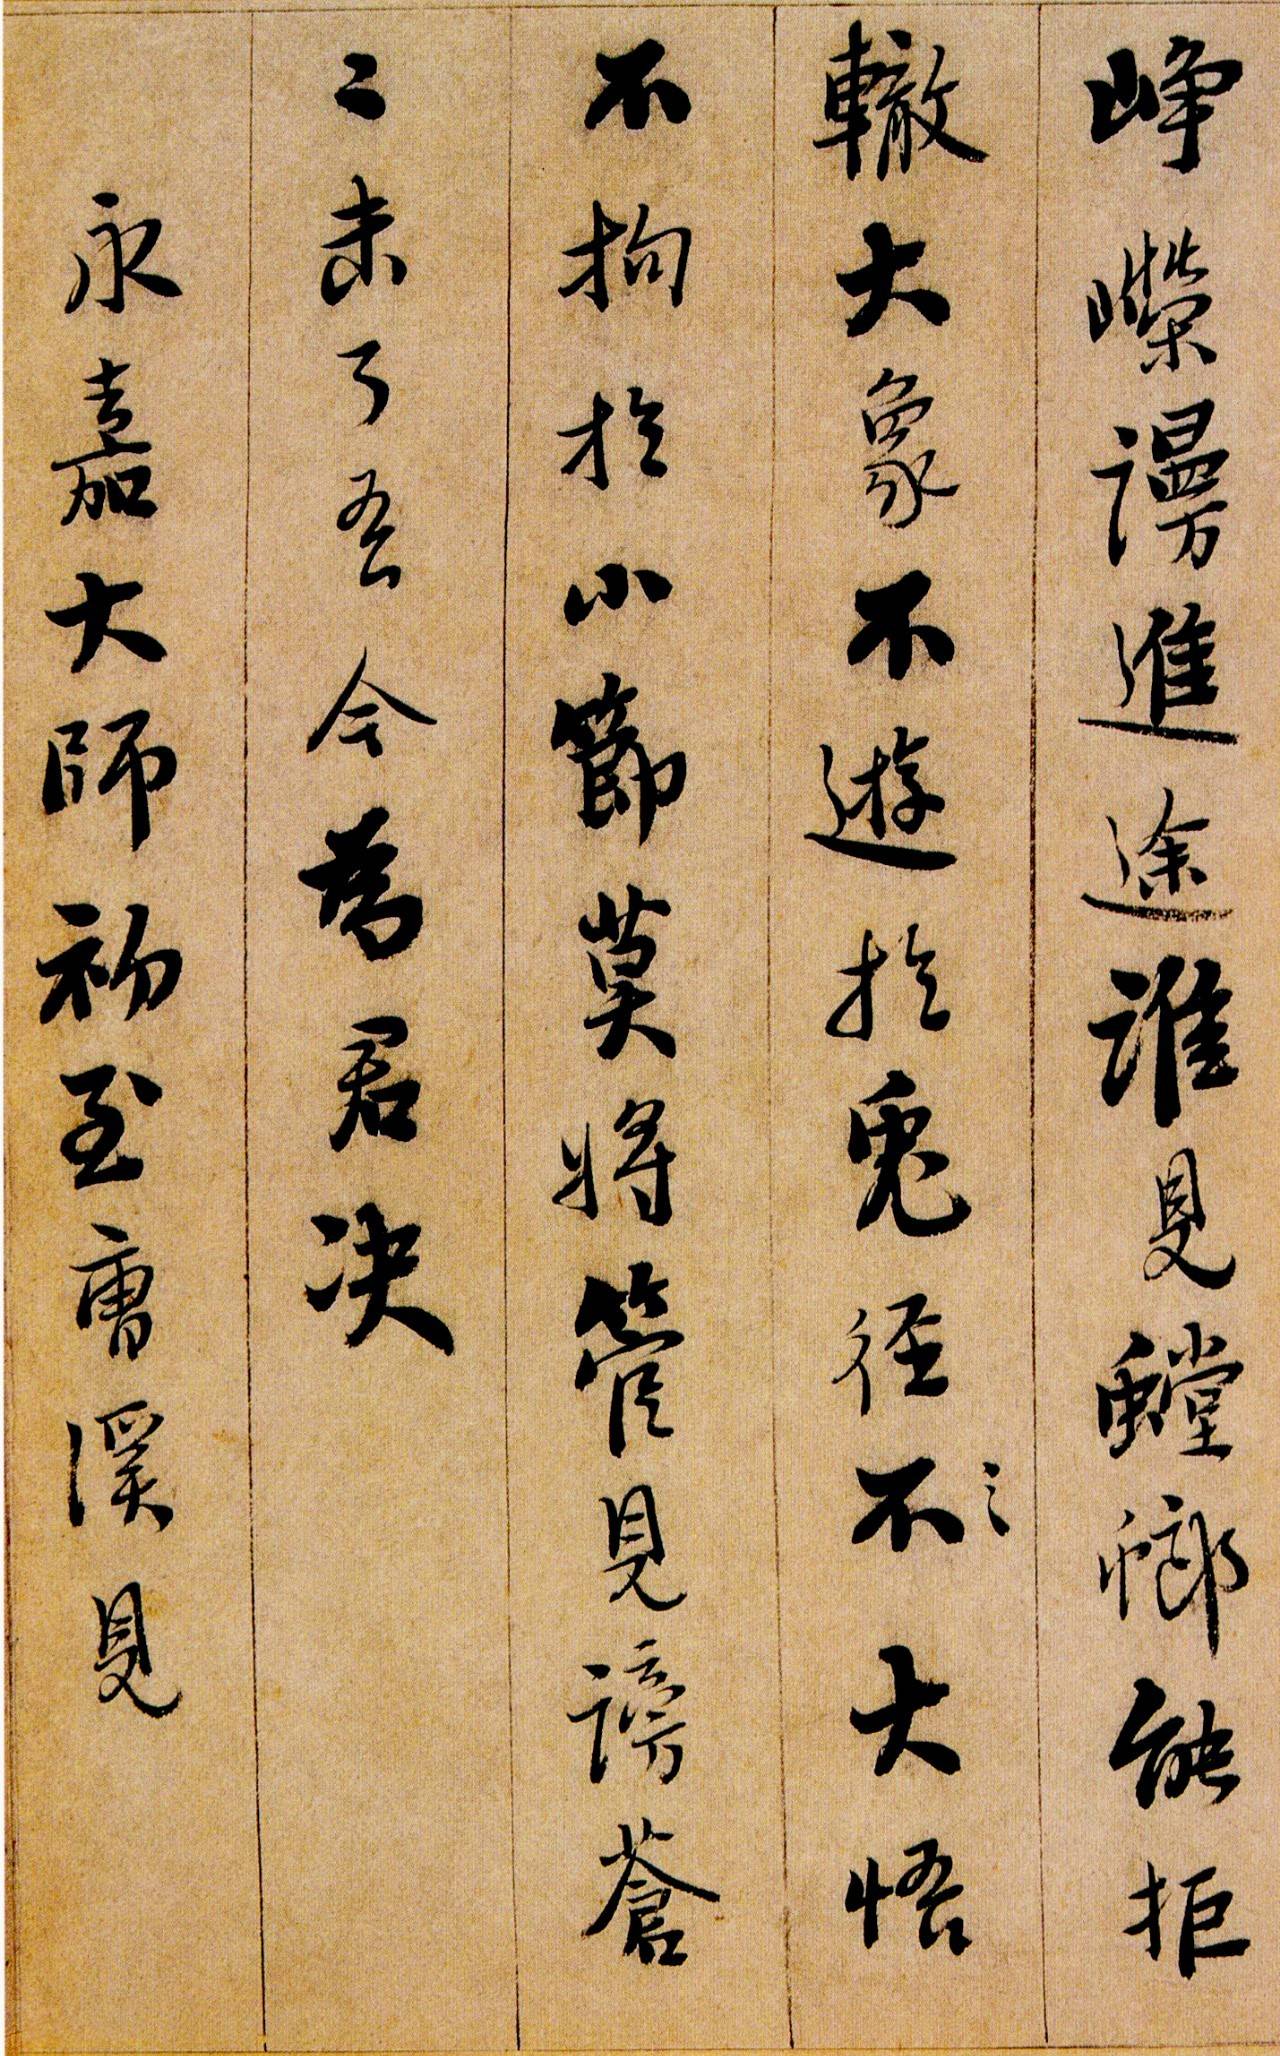 崢嶸謾進途誰見螳螂能拒
轍大象不遊扵兔徑不大悟
不拘扵小節莫將管見謗蒼
〻未了吾今為君决
永嘉大師初至曹溪見